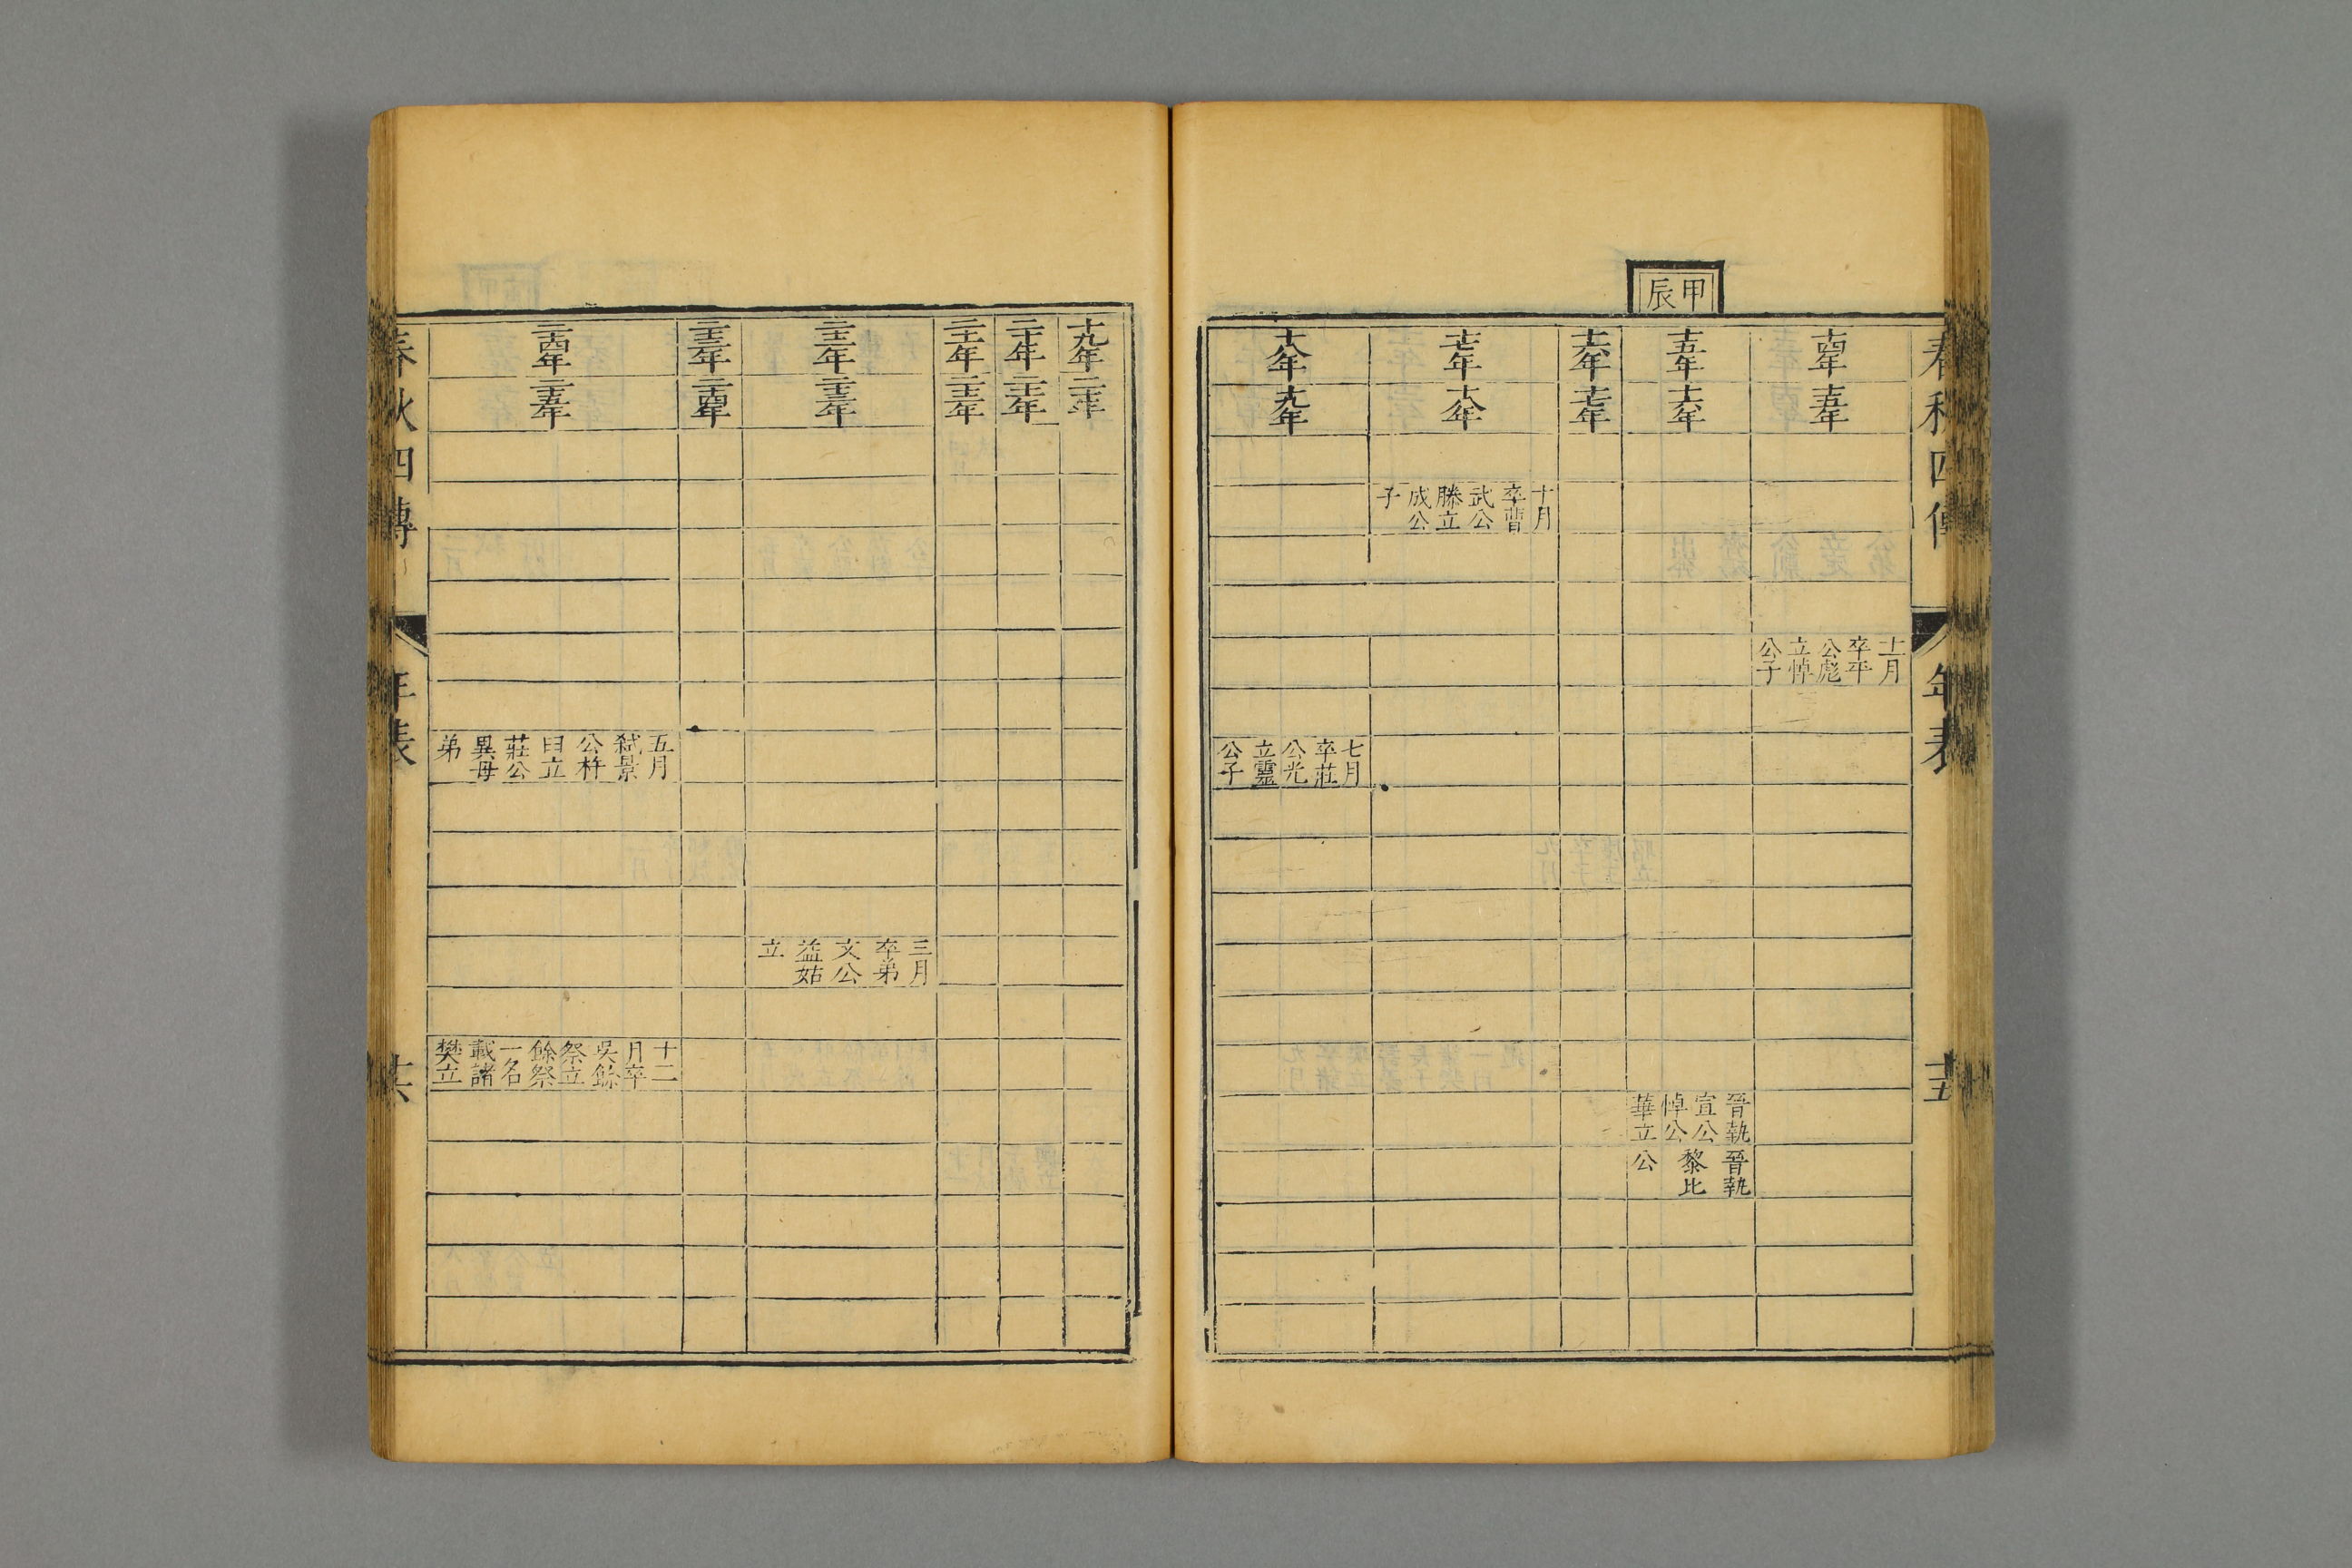 春秋四傳
年表
十五
甲辰
十四年
十五年
十一月
卒平
公彪
立悼
公子
十五年
十六年
晉執
宣公
悼公
華立
晉執
黎比
公
十六年
十七年
十七年
十八年
十月
卒曹
武公
滕立
成公
子
十八年
十九年
七月
卒莊
公光
立靈
公子
十九年
二十年
二十年
二十一年
二十一年
二十二年
二十二年
二十三年
三月
卒弟
文公
益姑
立
二十三年
二十四年
二十四年
二十五年
五月
弑景
公杵
臼立
莊公
異母
弟
十二
月卒
吳餘
祭立
餘祭
一名
戴諸
樊立
春秋四傳
年表
十六